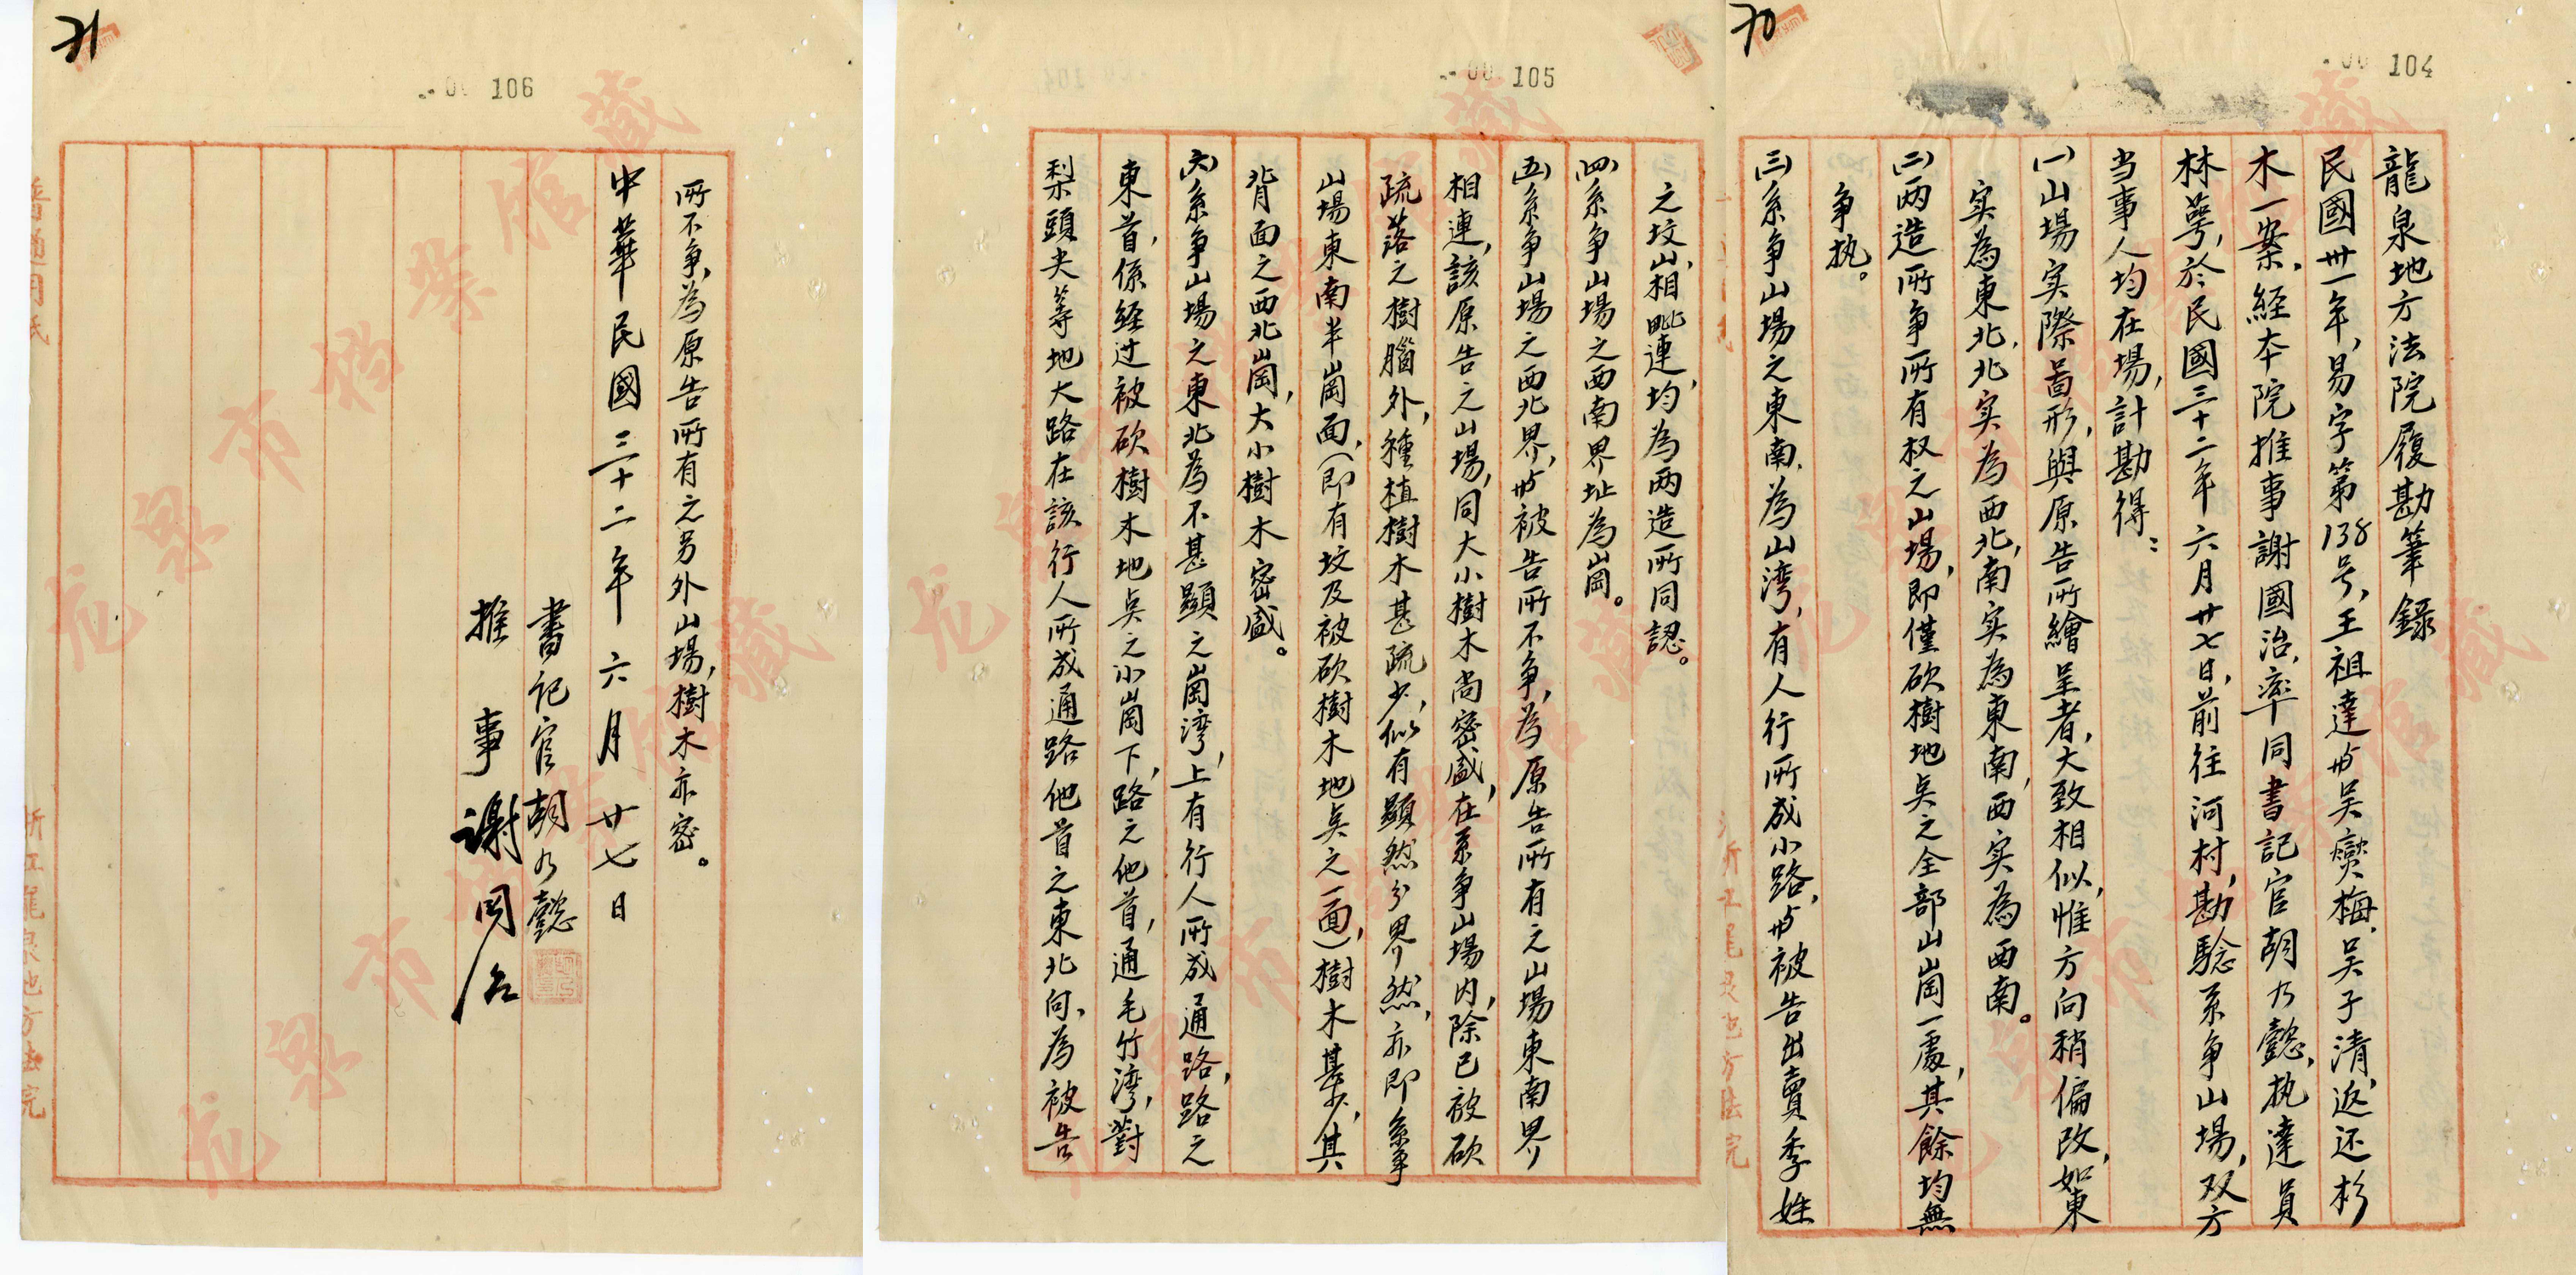 70
104
龍泉地方法院履勘筆錄
民國卅一年,易字第138号,王祖達与吴奕梅、吴子清,返还杉
木一案,経本院推事謝國治,率同書記官胡乃懿,执達員
林萼,於民國三十二年六月廿七日,前往河村,勘騐系争山場,双方
当事人均在場,計勘得:
(一)山場实際畐形,與原告所繪呈者,大致相似,惟方向稍偏改,如東
实為東北,北实為西北,南实為東南,西实為西南。
(二)两造所争所有权之山場,即僅砍樹地点之全部山崗一處,其餘均無
争执。
(三)系争山場之東南,為山湾,有人行所成小路,与被告出賣季姓
105
之坟山,相毗連,均為两造所同認。
(四)系争山場之西南界址為崗。
(五)系争山場之西北界,与被告所不争,為原告所有之山場東南界
相連,該原告之山場,同大小樹木尚密盛,在系争山場内,除已被砍
疏落之樹腦外,種植樹木甚疏少,似有顯然分界然,亦即系争
山場東南半崗面,(即有坟及被砍樹木地点之一面)樹木甚少,其
背面之西北崗,大小樹木密盛。
(六)系争山場之東北為不甚顯之崗湾,上有行人所成通路,路之
東首,係経过被砍樹木地点之小崗下,路之他首,通毛竹湾,對
梨頭尖等地大路在該行人所成通路他首之東北向,為被告
71
106
所不争,為原告所有之另外山場,樹木亦密。
中華民國三十二年六月廿七日
書記官胡乃懿
推事謝國治
普通用紙
浙江龍泉地方法院
龙泉市档案馆藏